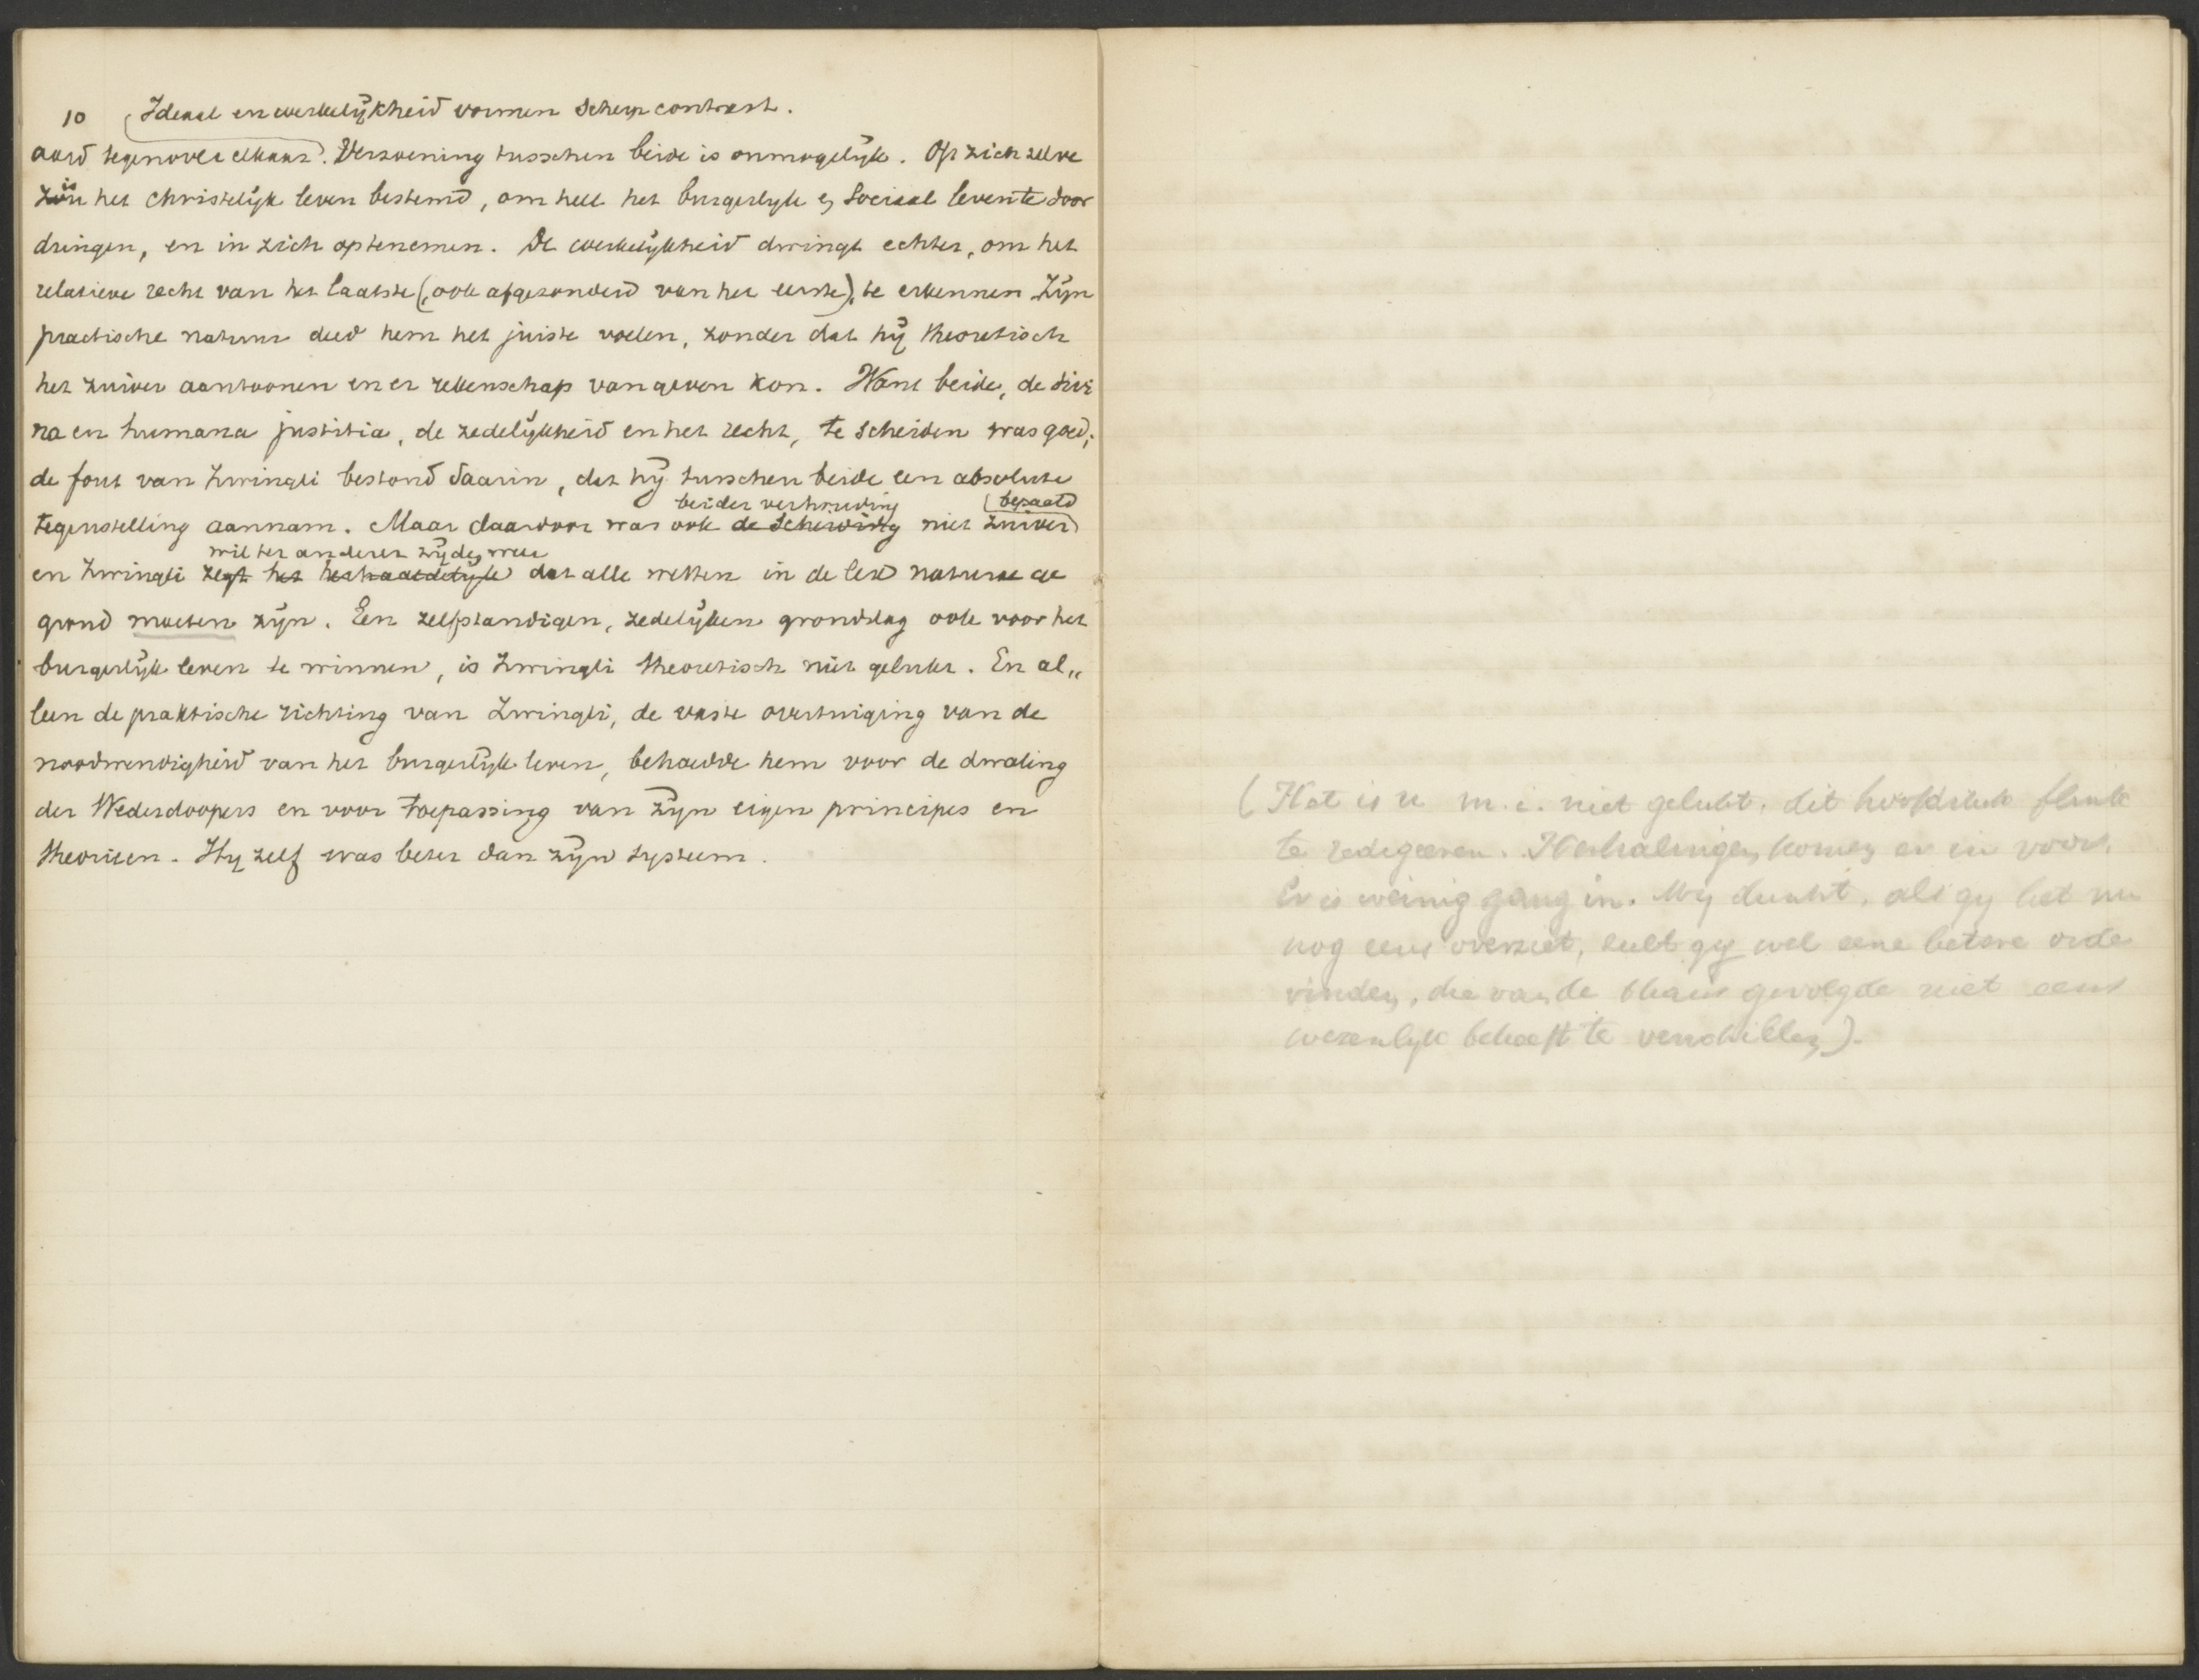 10 Ideaal en werkelijkheid vormen scherp contrast.
aard tegenover elkaar. Verzoening tusschen beide is onmogelijk. Op zich zelve
is het christelijk leven bestemd, om heel het burgerlijk en sociaal leven te door
dringen, en in zich optenemen. De werkelijkheid dwingt echter, om het
relatieve recht van het laatste (, ook afgezonderd van het eerste), te erkennen. Zijn
practische natuur deed hem het juiste voelen, zonder dat hij theoretisch
het zuiver aantoonen en er rekenschap van geven kon. Want beide, de divi
na en humana justitia, de zedelijkheid en het recht, te scheiden was goed;
de fout van Zwingli bestond daarin, dat hij tusschen beide een absolute
beider verhouding bepaald
tegenstelling aannam. Maar daardoor was ook de scheiding niet zuiver
wil ter anderer zijde weer
en Zwingli zegt het herhaaldelijk dat alle wetten in de lex naturae ge
grond moeten zijn. Een zelfstandigen, zedelijken grondslag ook voor het
burgerlijk leven te winnen, is Zwingli theoretisch niet gelukt. En al„
leen de praktische richting van Zwingli, de vaste overtuiging van de
noodwendigheid van het burgerlijk leven, behoedde hem voor de dwaling
der Wederdoopers en voor toepassing van zijn eigen principes en
theorieen. Hij zelf was beter dan zijn systeem.
(Het is u m.i. niet gelukt, dit hoofdstuk flink
te redigeeren. Herhalingen komen er in voor.
Er is weinig gang in. Mij dunkt, als gij het nu
nog eens overziet, zult gij wel eene betere orde
vinden, die van de thans gevolgde niet eens
wezenlijk behoeft te verschillen).